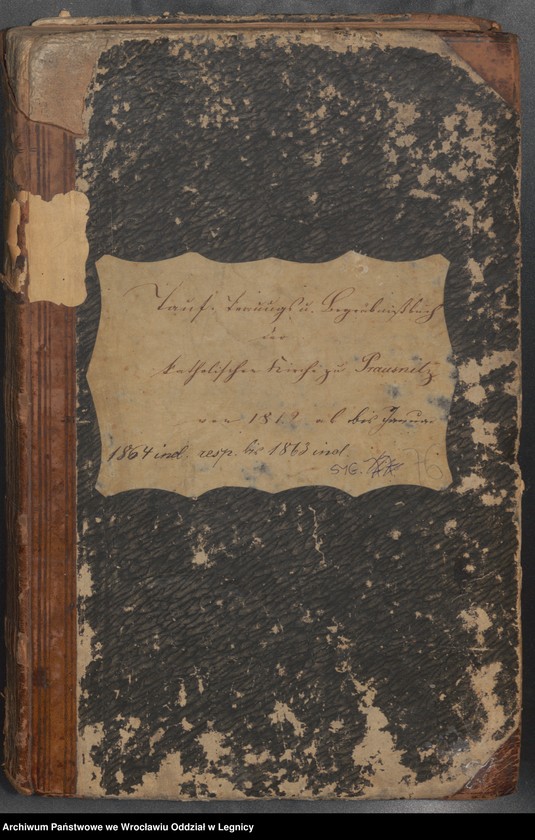 Tauf- Trauungs u. Begräbnißbuch
der
katholischen Kirche zu Prausnitz
von 1812 ab bis Januar
1864 incl. resp. bis 1863 incl.
SYG. 76
Archiwum Państwowe we Wrocławiu Oddział w Legnicy